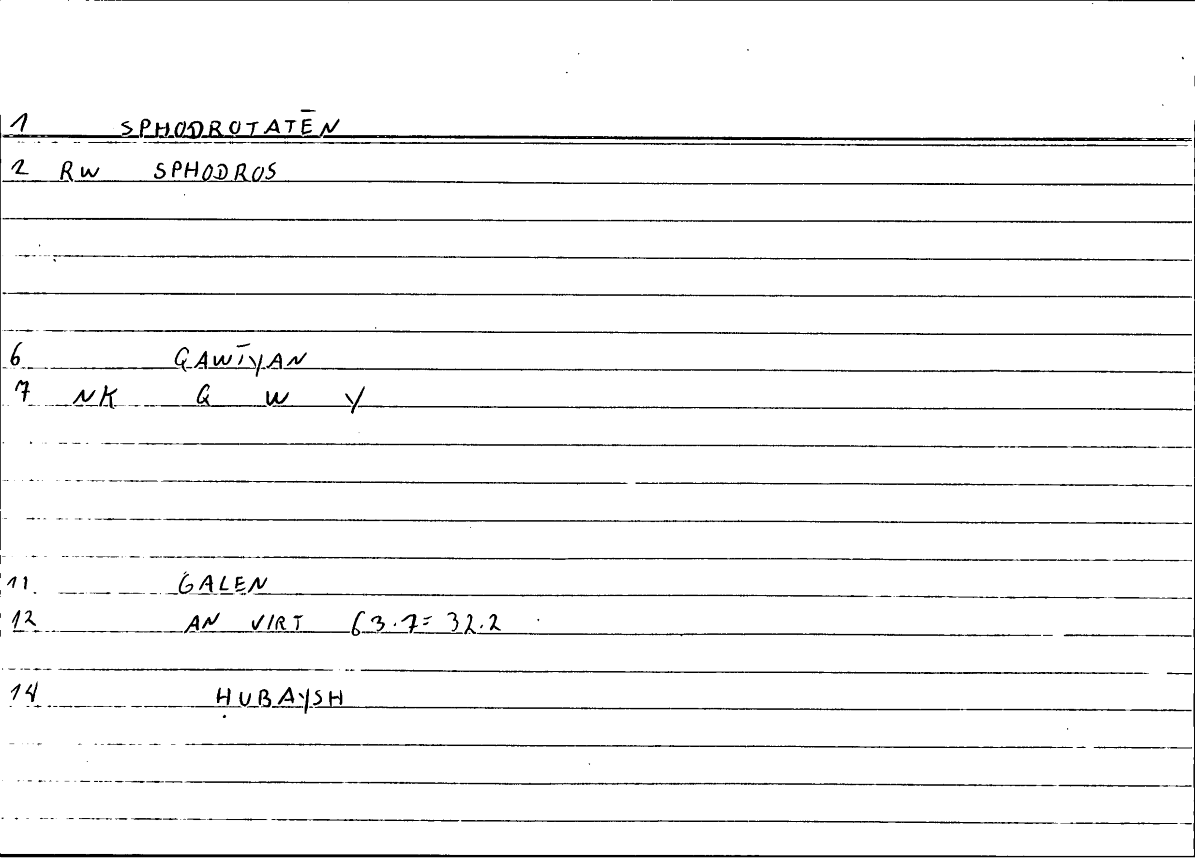 1 SPHODROTATĒN
2 RW SPHODROS
6 QAWĪYAN
7 NK Q W Y
11 GALEN
12 AN VIRT 63.7=32.2
14 ḤUBAYSH